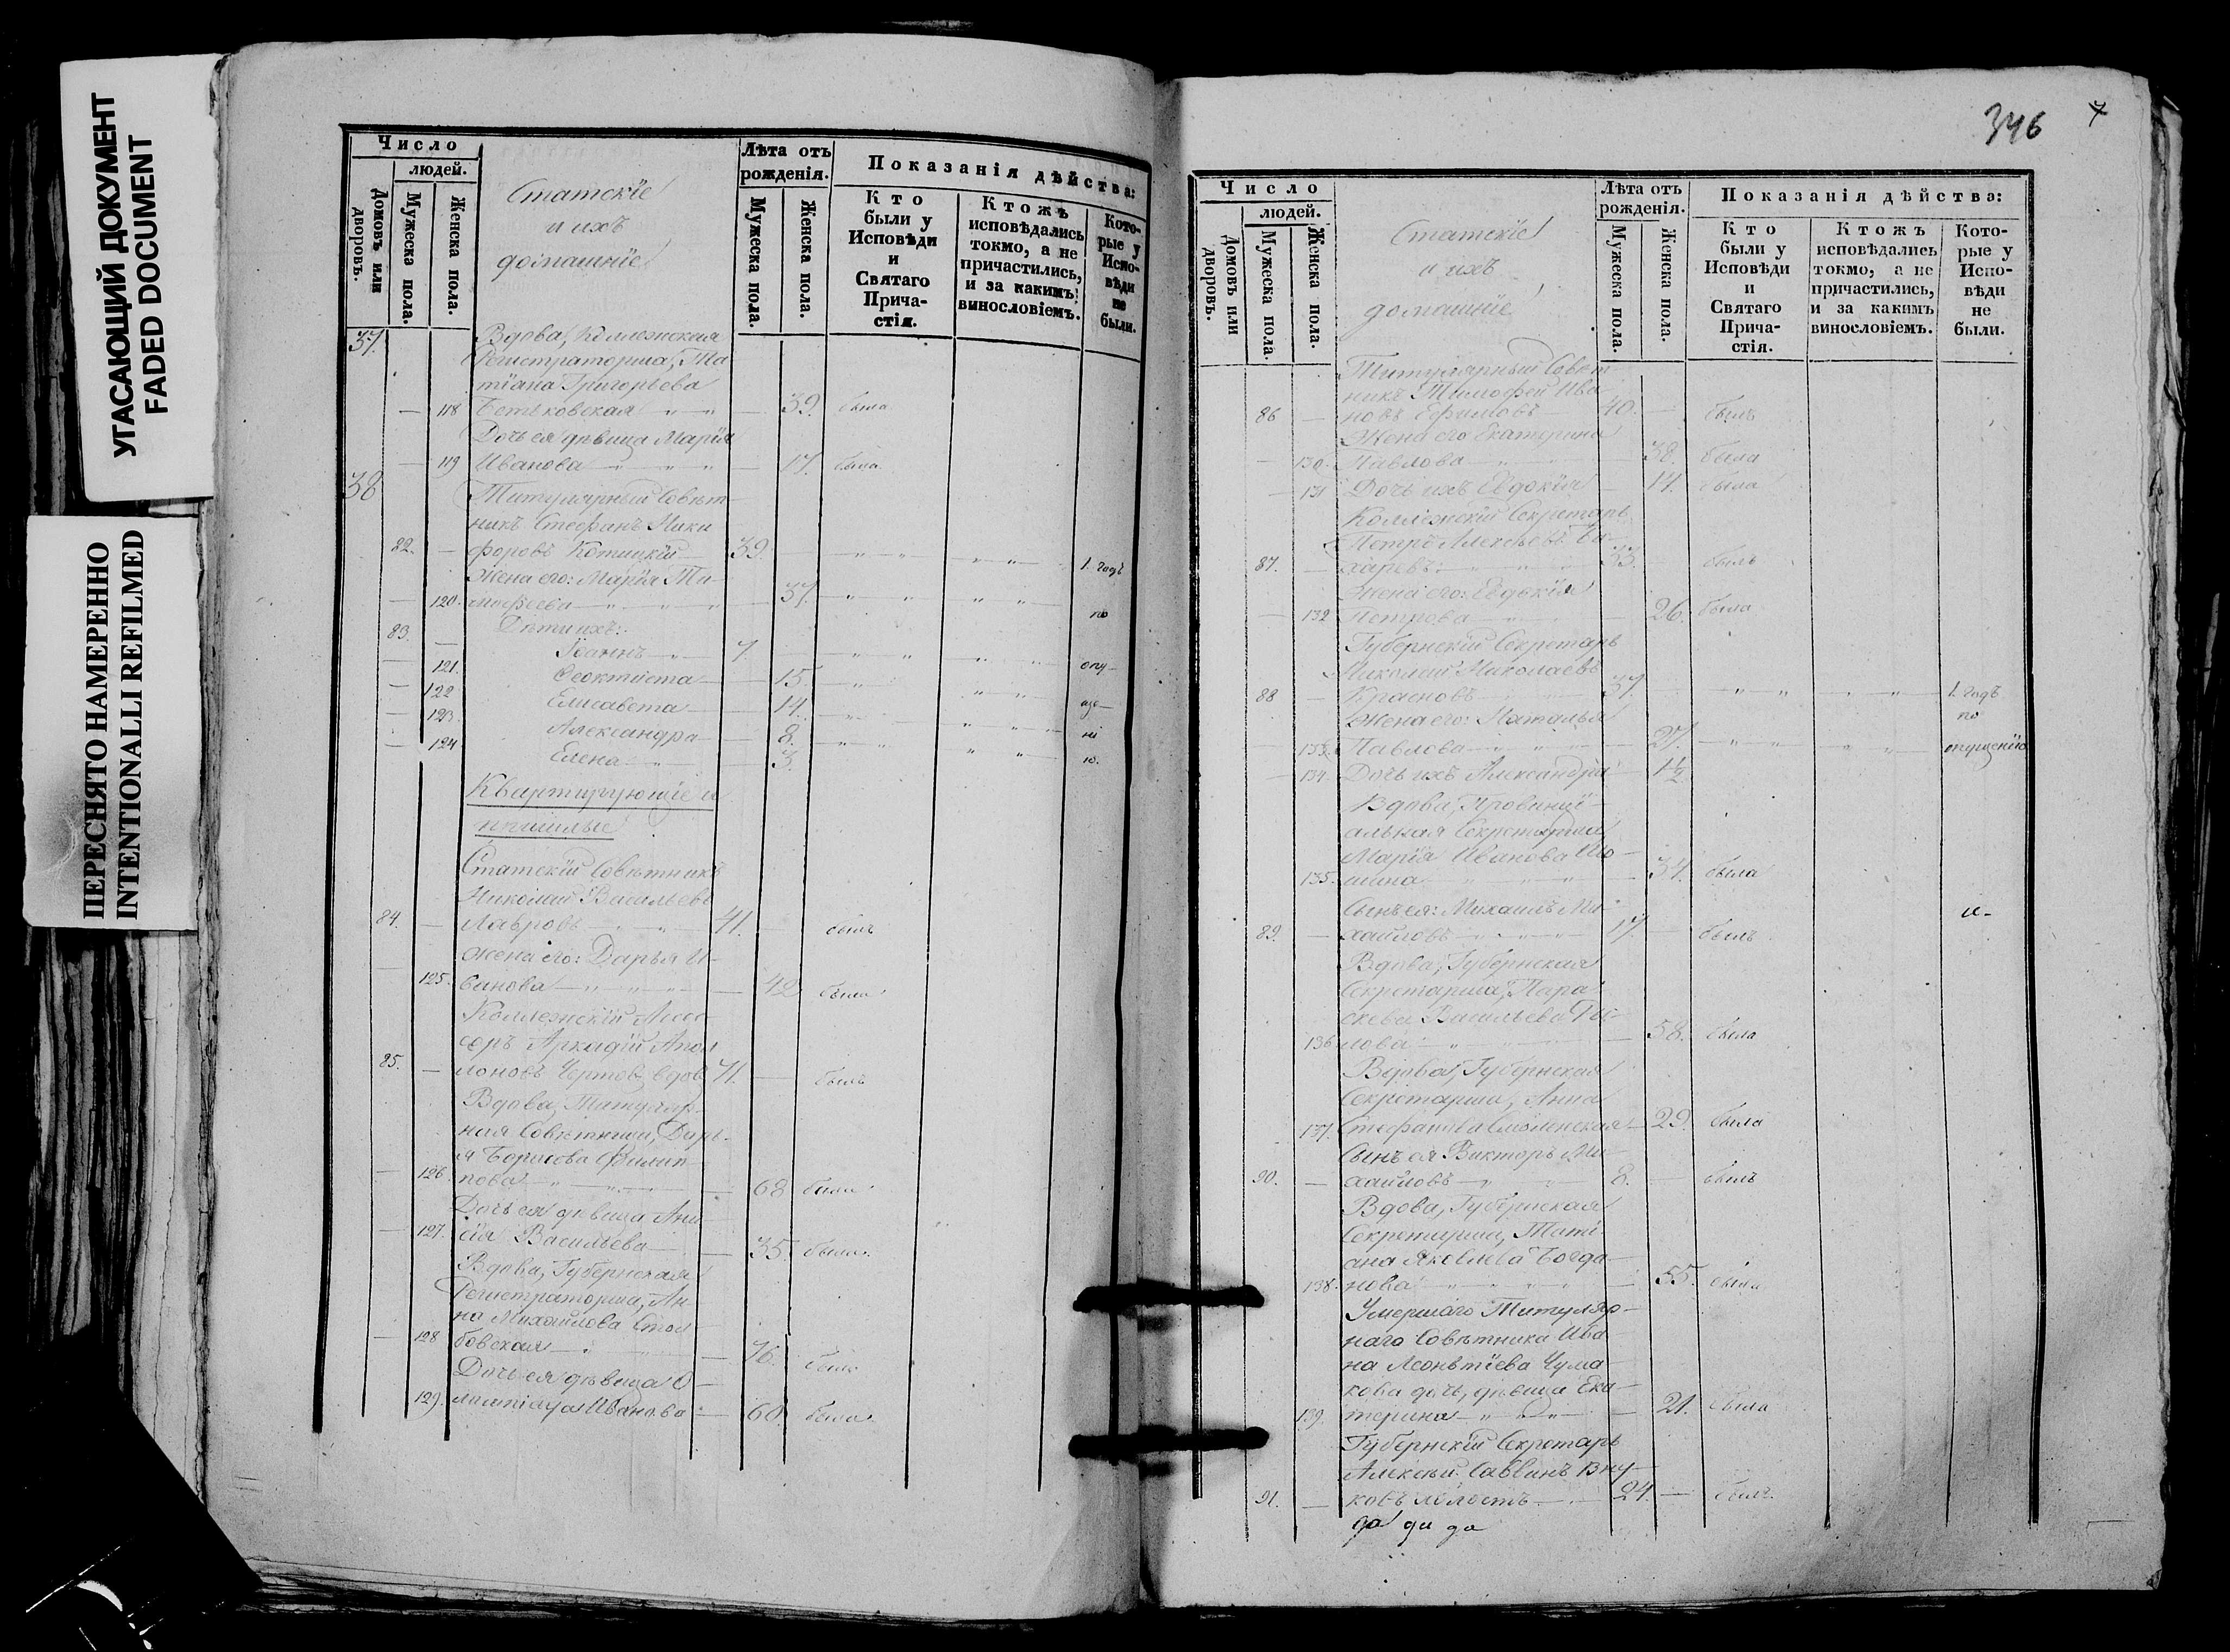 УГАСАЮЩИЙ ДОКУМЕНТ
FADED DOCUMENT
ПЕРЕСНЯТО НАМЕРЕННО
INTENTIONALLI REFILMED
Число
людей.
Домовъ или дворовъ.
Мужеска пола.
Женска пола.
Статскіе
и ихъ
домашніе
Лѣта отъ рожденія.
Мужеска пола.
Женска пола.
Показанія дѣйства:
Кто были у Исповѣди и Святаго Причастія.
Ктожъ исповѣдались токмо, а не причастились, и за какимъ винословіемъ.
Которые у Исповѣди не были.
37. Вдова, Коллежская
Регистраторша, Та
тіана Григорьева
118 39. была
Дочь ея дѣвица Марія
119 Иванова 17. была
38 Титулярный Совѣт
никъ Стефанъ Ники
82. форовъ 39. 1. годъ
Жена его: Марія Ти-
120. мофеева 37. по
Дѣти ихъ:
83. Іоаннъ 7.
121. Феоктиста 15. опу-
122 Елисавета 14. ще-
123. Александра 8. ні
124 Елена 3. ю.
Квартирующіе и
пришлые
Статскій Совѣтникъ
Николай Васильевъ
84. Лавровъ 41. былъ
Жена его: Дарья И-
125. ванова 42 была
Коллежскій Ассес-
соръ Аркадій Апол
85. лоновъ вдов. 71. былъ
Вдова, Титуляр-
ная Совѣтница, Дарь-
я Борисова Филип-
126. пова 68 была
Дочь ея дѣвица Ани-
127. сія Васильева 35. была
Вдова, Губернская
Регистраторша, Ан-
на Михайлова Стол
128 бовская 76. была
Дочь ея дѣвица О-
129. лимпіада Иванова 60. была
346 7
Число
людей.
Домовъ или дворовъ.
Мужеска пола.
Женска пола.
Статскіе
и ихъ
домашніе
Лѣта отъ рожденія.
Мужеска пола.
Женска пола.
Показанія дѣйства:
Кто были у Исповѣди и Святаго Причастія.
Ктожъ исповѣдались токмо, а не причастились, и за какимъ винословіемъ.
Которые у Исповѣди не были.
Титулярный Совѣт
никъ Тимофей Ива
86 новъ Ефимовъ 40. былъ
Жена его Екатерина
130. Павлова 38. была
131 Дочь ихъ Евдокія 14. была
Коллежскій Секретарь
Петръ Алексѣевъ
87. 33. былъ
Жена его: Евдокія
132 Петрова 26. была
Губернскій Секретарь
Николай Николаевъ
88 Красновъ 37. 1. годъ
Жена его: Наталья по
133. Павлова 27. опущенію
134. Дочь ихъ Александра 1½
Вдова, Провинці-
альная Секретарша
Марія Иванова
135. 34. была
Сынъ ея: Михаилъ Ми-
89. хайловъ 17. былъ
Вдова, Губернская
Секретарша, Пара
скева Васильева
136 58. была
Вдова, Губернская
Секретарша, Анна
137. Стефанова Смоленская 29. была
Сынъ ея Викторъ Ми-
90. хайловъ 8. былъ
Вдова, Губернская
Секретарша, Тати-
ана Яковлева Богда-
138. нова 55. была
Умершаго Титуляр-
наго Совѣтника Ива
на Леонтіева Чума
кова дочь, дѣвица Ека-
139. терина 21. была
Губернскій Секретарь
Алексѣй Саввинъ Вну-
91. ковъ холостъ 24. былъ
да да да